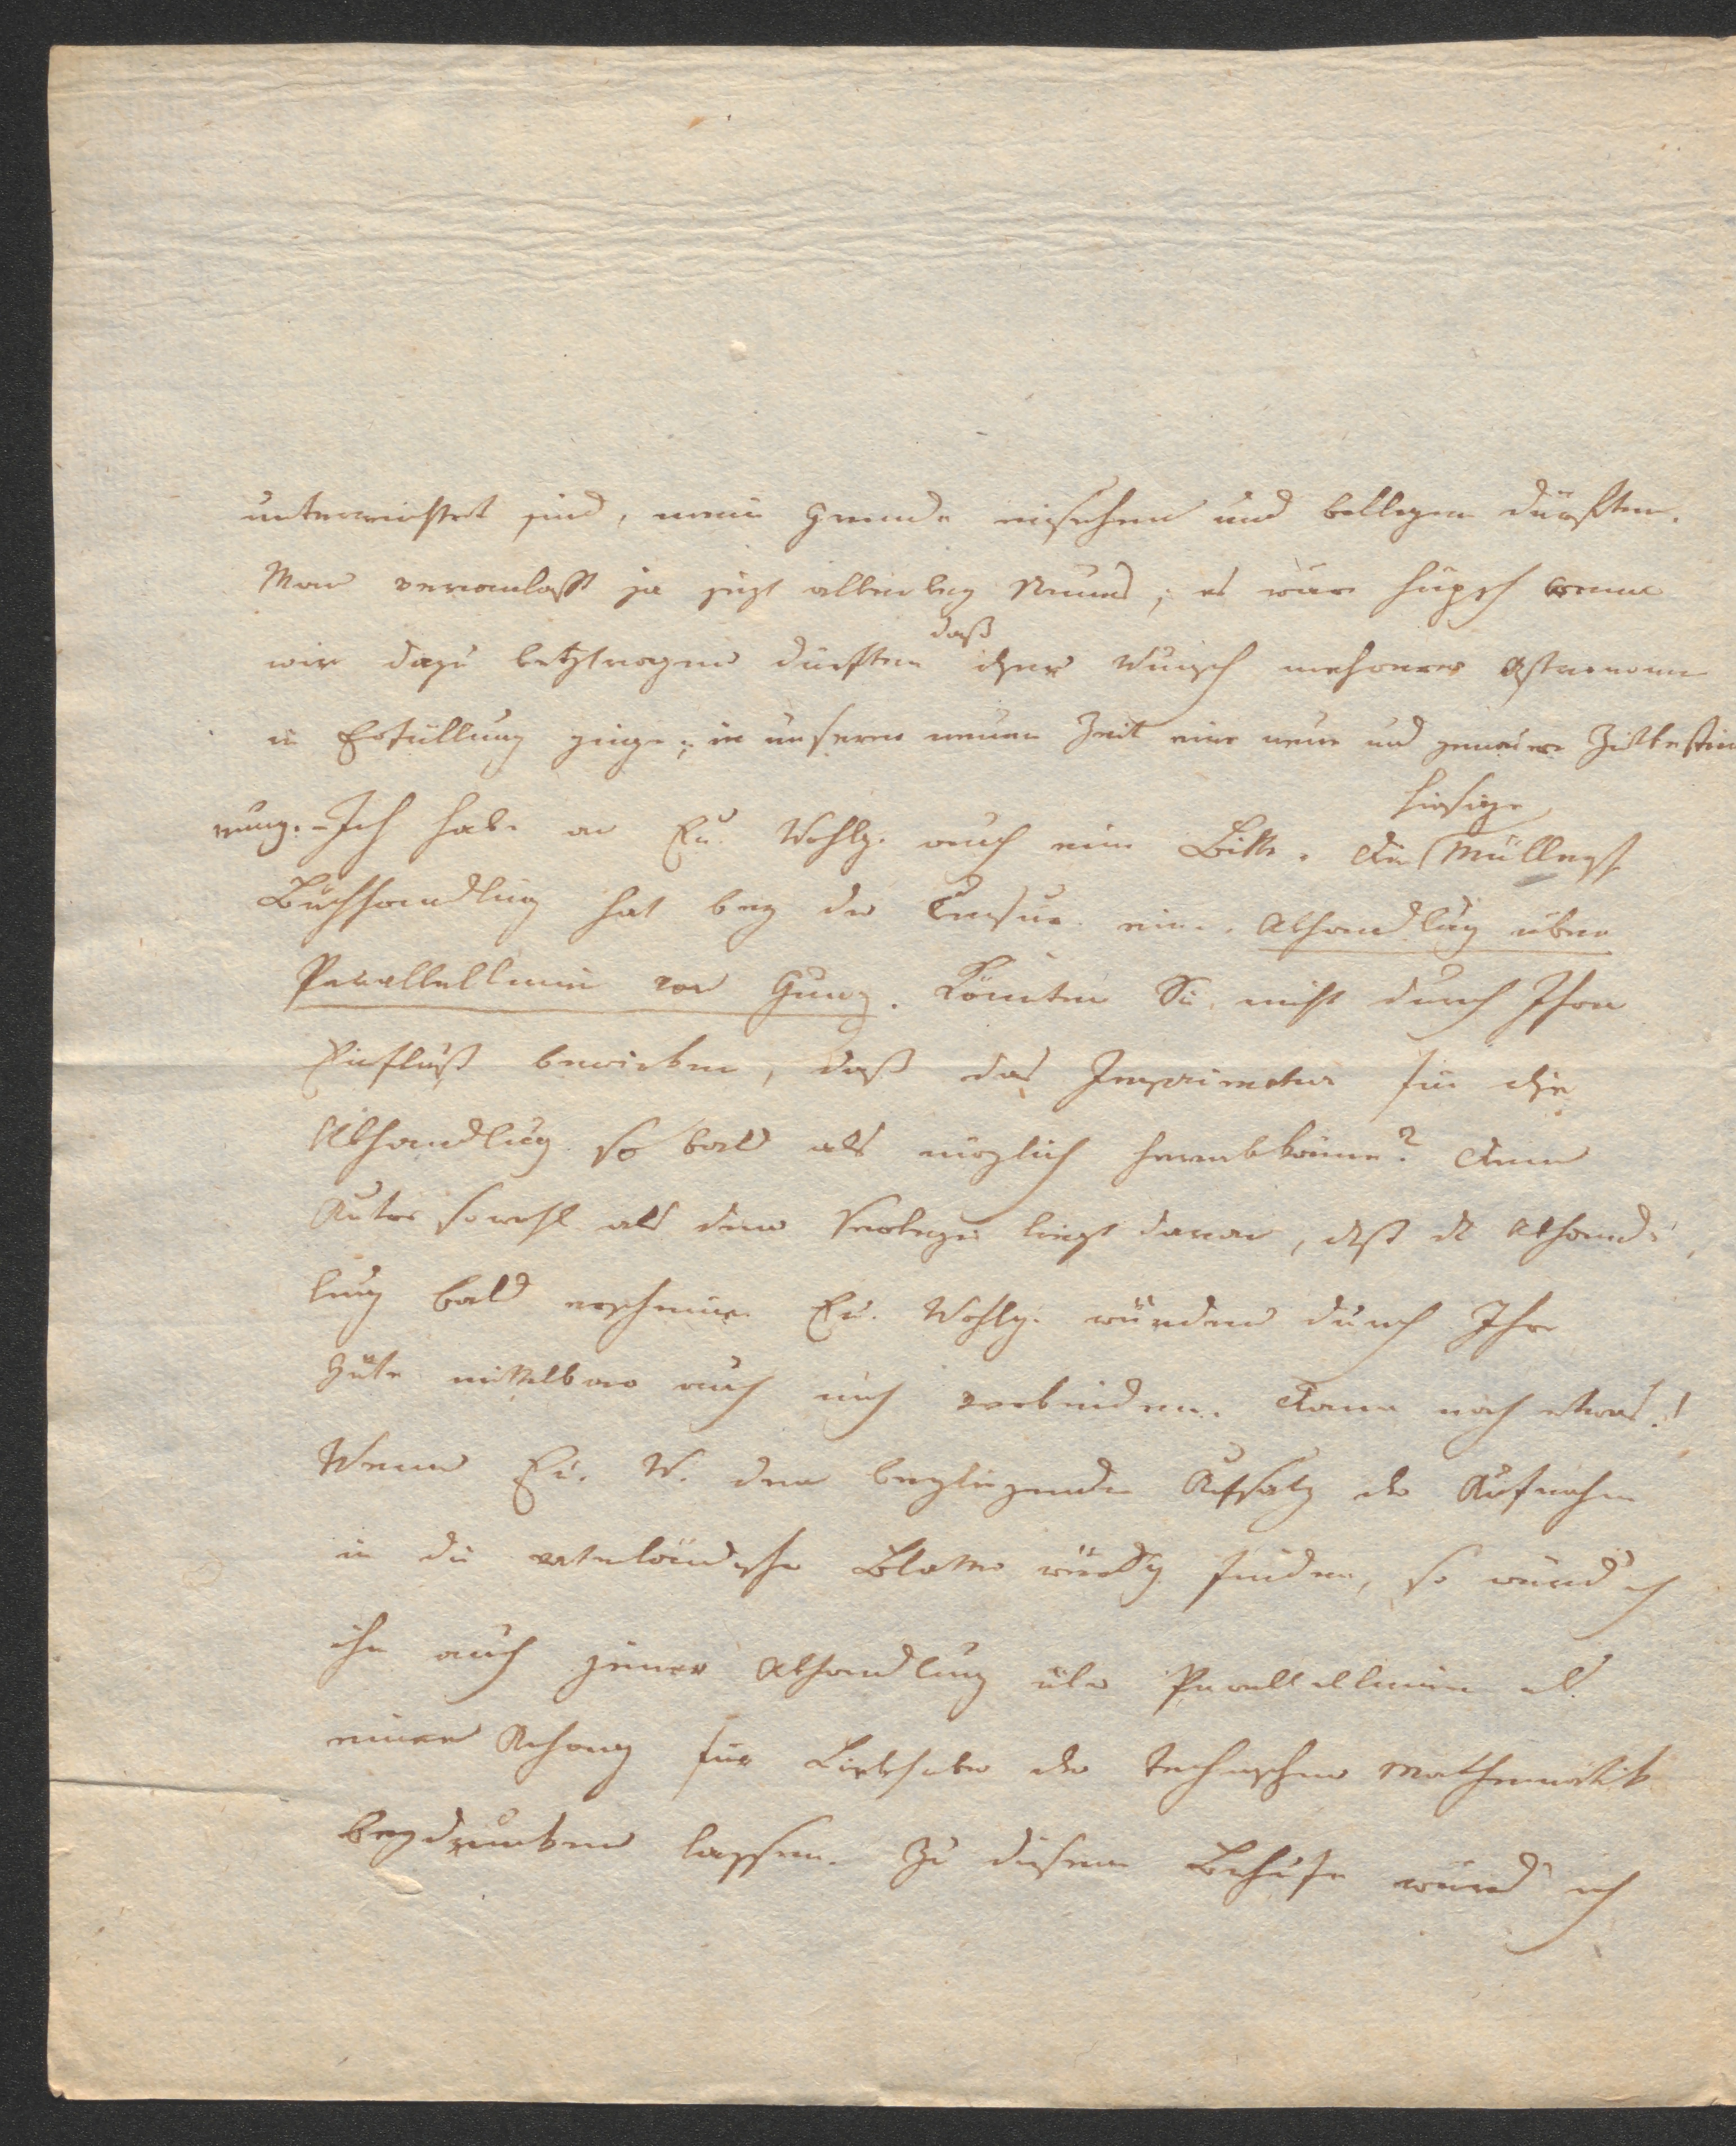 unterrichtet sind, meine Gründe einsehen und billigen dürften.
Man veranlaßt ja jezt allerley Neues; es wäre hüpsch wenn
wir dazu beytragen dürften daß dieser Wunsch mehrerer Astronomen
in Erfüllung ginge; in unserer neuen Zeit eine neue und genauere Zeitbestim
mung. – Ich habe an Eu. Wohlg. auch eine Bitte. Die hiesige Müllersche
Buchhandlung hat bey der Censur eine Abhandlung über
Parallellinien von Gunz. Könnten Sie nicht durch Ihren
Einfluß bewirken, daß das Imprimatur für die
Abhandlung so bald als möglich herabkomme? Dem
Autor sowohl als dem Verleger liegt daran, daß die Abhand-
lung bald erscheine. Eu. Wohlg. würden durch Ihre
Güte mittelbar auch mich verbinden. Dann noch etwas!
Wenn Eu. W. den beyliegenden Aufsatz der Aufnahme
in die vaterländische Blätter würdig finden, so würd ich
ihn auch jener Abhandlung über Parallellinien als
einen Anhang für Liebhaber der technischen Mathematik
beydrucken lassen. Zu diesem Behufe würd ich